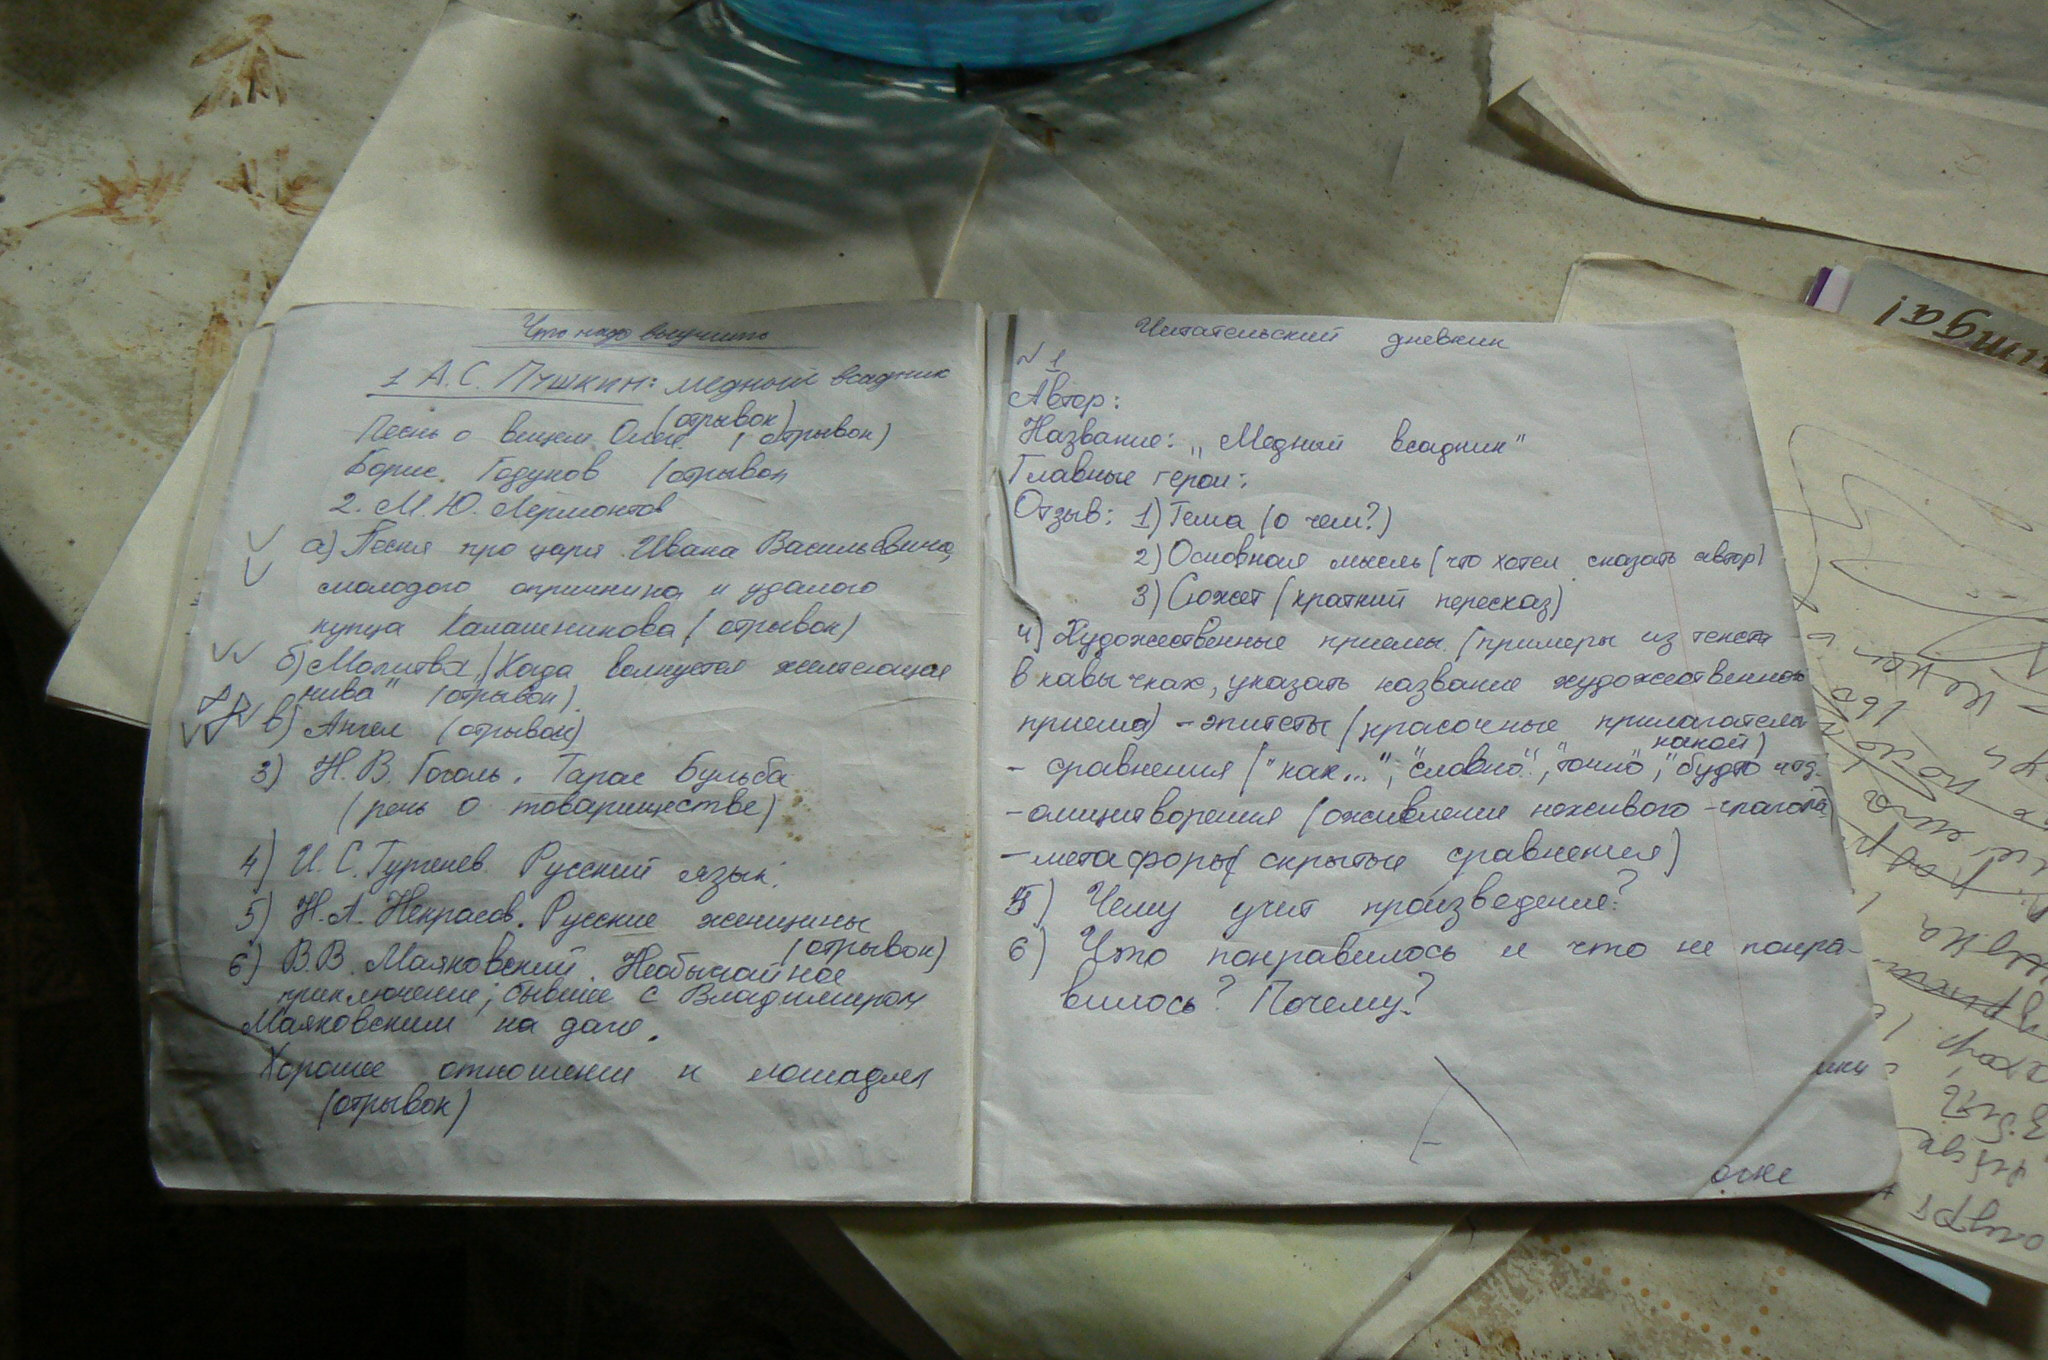 Что надо выучить
1 А.С. Пушкин: Медный всадник
(отрывок)
Песнь о вещем Олеге (отрывок)
Борис Годунов (отрывок
2. М.Ю. Лермонтов
а) Песня про царя Ивана Васильевича,
молодого опричника и удалого
купца Калашникова (отрывок)
б) Молитва, "Когда волнуется желтеющая
нива" (отрывок).
в) Ангел (отрывок)
3) Н.В. Гоголь. Тарас Бульба
(речь о товариществе)
4) И.С. Тургенев. Русский язык.
5) Н.А. Некрасов. Русские женщины
(отрывок)
6) В.В. Маяковский. Необычайное
приключение, бывшее с Владимиром
Маяковским на даче.
Хорошее отношение к лошадям
(отрывок)
Читательский дневник
№ 1
Автор:
Название: „Медный всадник"
Главные герои:
Отзыв: 1) Тема (о чем?)
2) Основная мысль (что хотел сказать автор)
3) Сюжет (краткий пересказ)
4) Художественные приемы (примеры из текста
в кавычках, указать название художественного
приема) - эпитеты (красочные прилагательн
какой)
- сравнения ("как...", "словно", "точно", "будто
- олицетворения (оживление неживого - глагола)
- метафоры (скрытые сравнения)
5) Чему учит произведение?
6) Что понравилось и что не понра-
вилось? Почему?
огне